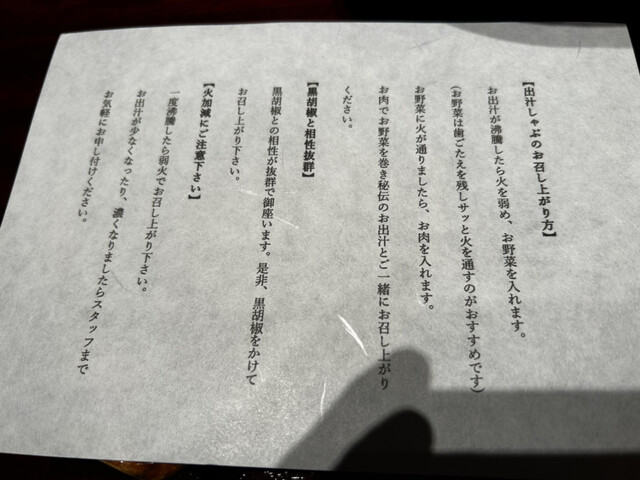 【出汁しゃぶのお召し上がり方】
お出汁が沸騰したら火を弱め、お野菜を入れます。
(お野菜は歯ごたえを残しサッと火を通すのがおすすめです)
お野菜に火が通りましたら、お肉を入れます。
お肉でお野菜を巻き秘伝のお出汁とご一緒にお召し上がり
ください。
【黒胡椒と相性抜群】
黒胡椒との相性が抜群で御座います。是非、黒胡椒をかけて
お召し上がり下さい。
【火加減にご注意下さい】
一度沸騰したら弱火でお召し上がり下さい。
お出汁が少なくなったり、濃くなりましたらスタッフまで
お気軽にお申し付けください。